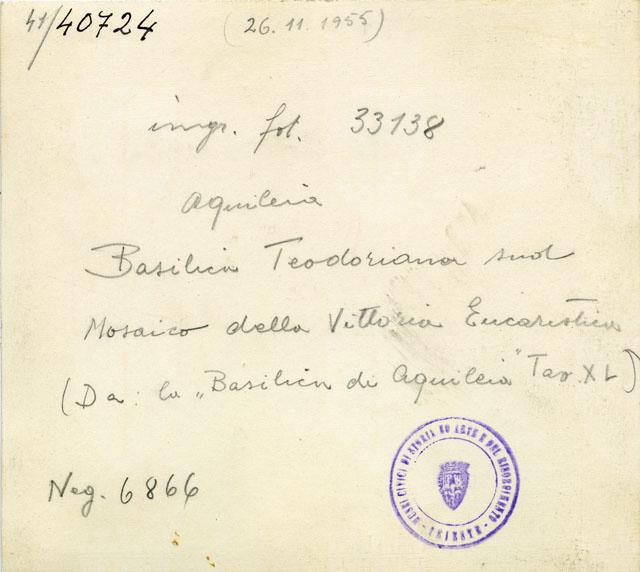 41/40724 (26.11.1955)
ingr. fot. 33138
Aquileia
Basilica Teodoriana sud
Mosaico della Vittoria Eucaristica
(Da: la „Basilica di Aquileia" Tav. XL)
Neg. 6866
MUSEI CIVICI DI STORIA ED ARTE E DEL RISORGIMENTO
- TRIESTE -